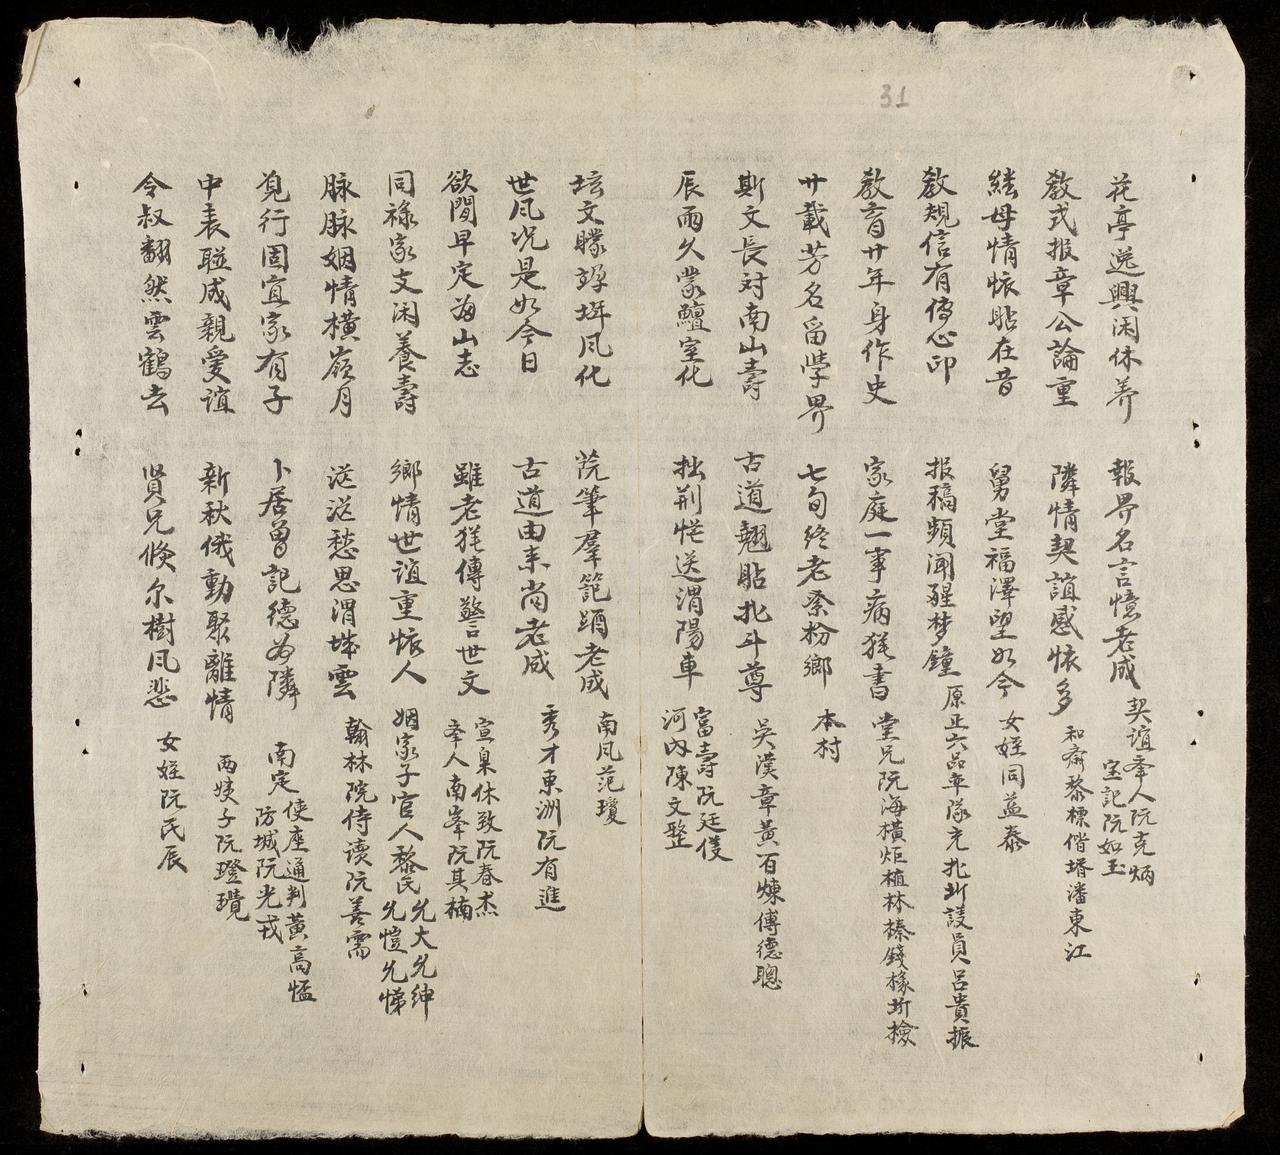 31
花亭逸興闲休养 報界名言憶老成 契誼奉人阮克炳 宝記阮如玉
教式报章公論重 隣情契誼感懷多 和斎黎標偕壻潘東江
継母情懷贴在昔 舅堂福澤望如今 女姪同益泰
教規信有傳心印 报稿頻闻醒梦鐘 原正六品率隊充北圻議員吕貴振
教育廿年身作史 家庭一事病猶書 堂兄阮海横炬植林榛錢椽圻撿
廿載芳名留學界 七旬終老桼枌鄉 本村
斯文長对南山壽 古道翹贴北斗尊 吳漢章黄百煉傅德聰
辰雨久蒙鱣室化 拙荆恾送渭陽車 富壽阮廷僾 河内陳文整
坛文矇 垪风化 筆羣範踊老成 南风范瓊
世风况是如今日 古道由来尚老成 秀才東洲阮有進
欲閒早定為山志 雖老猶傳警世文 宣臬休致阮春杰 奉人南峯阮其楠
同禄家支闲養壽 鄉情世誼重懷人 姻家子官人黎民允大允紳允愷允悌
脉脉姻情横嶺月 滋滋愁思渭城雲 翰林院侍读阮善需
覓行固宜家有子 卜居曽記德為隣 南定使座通判黄高慍 防城阮光戎
中表聯成親愛誼 新秋俄動聚離情 两姨子阮璒瓚
令叔翻然雲鶴去 贤兄倏尔樹风悲 女姪阮氏辰